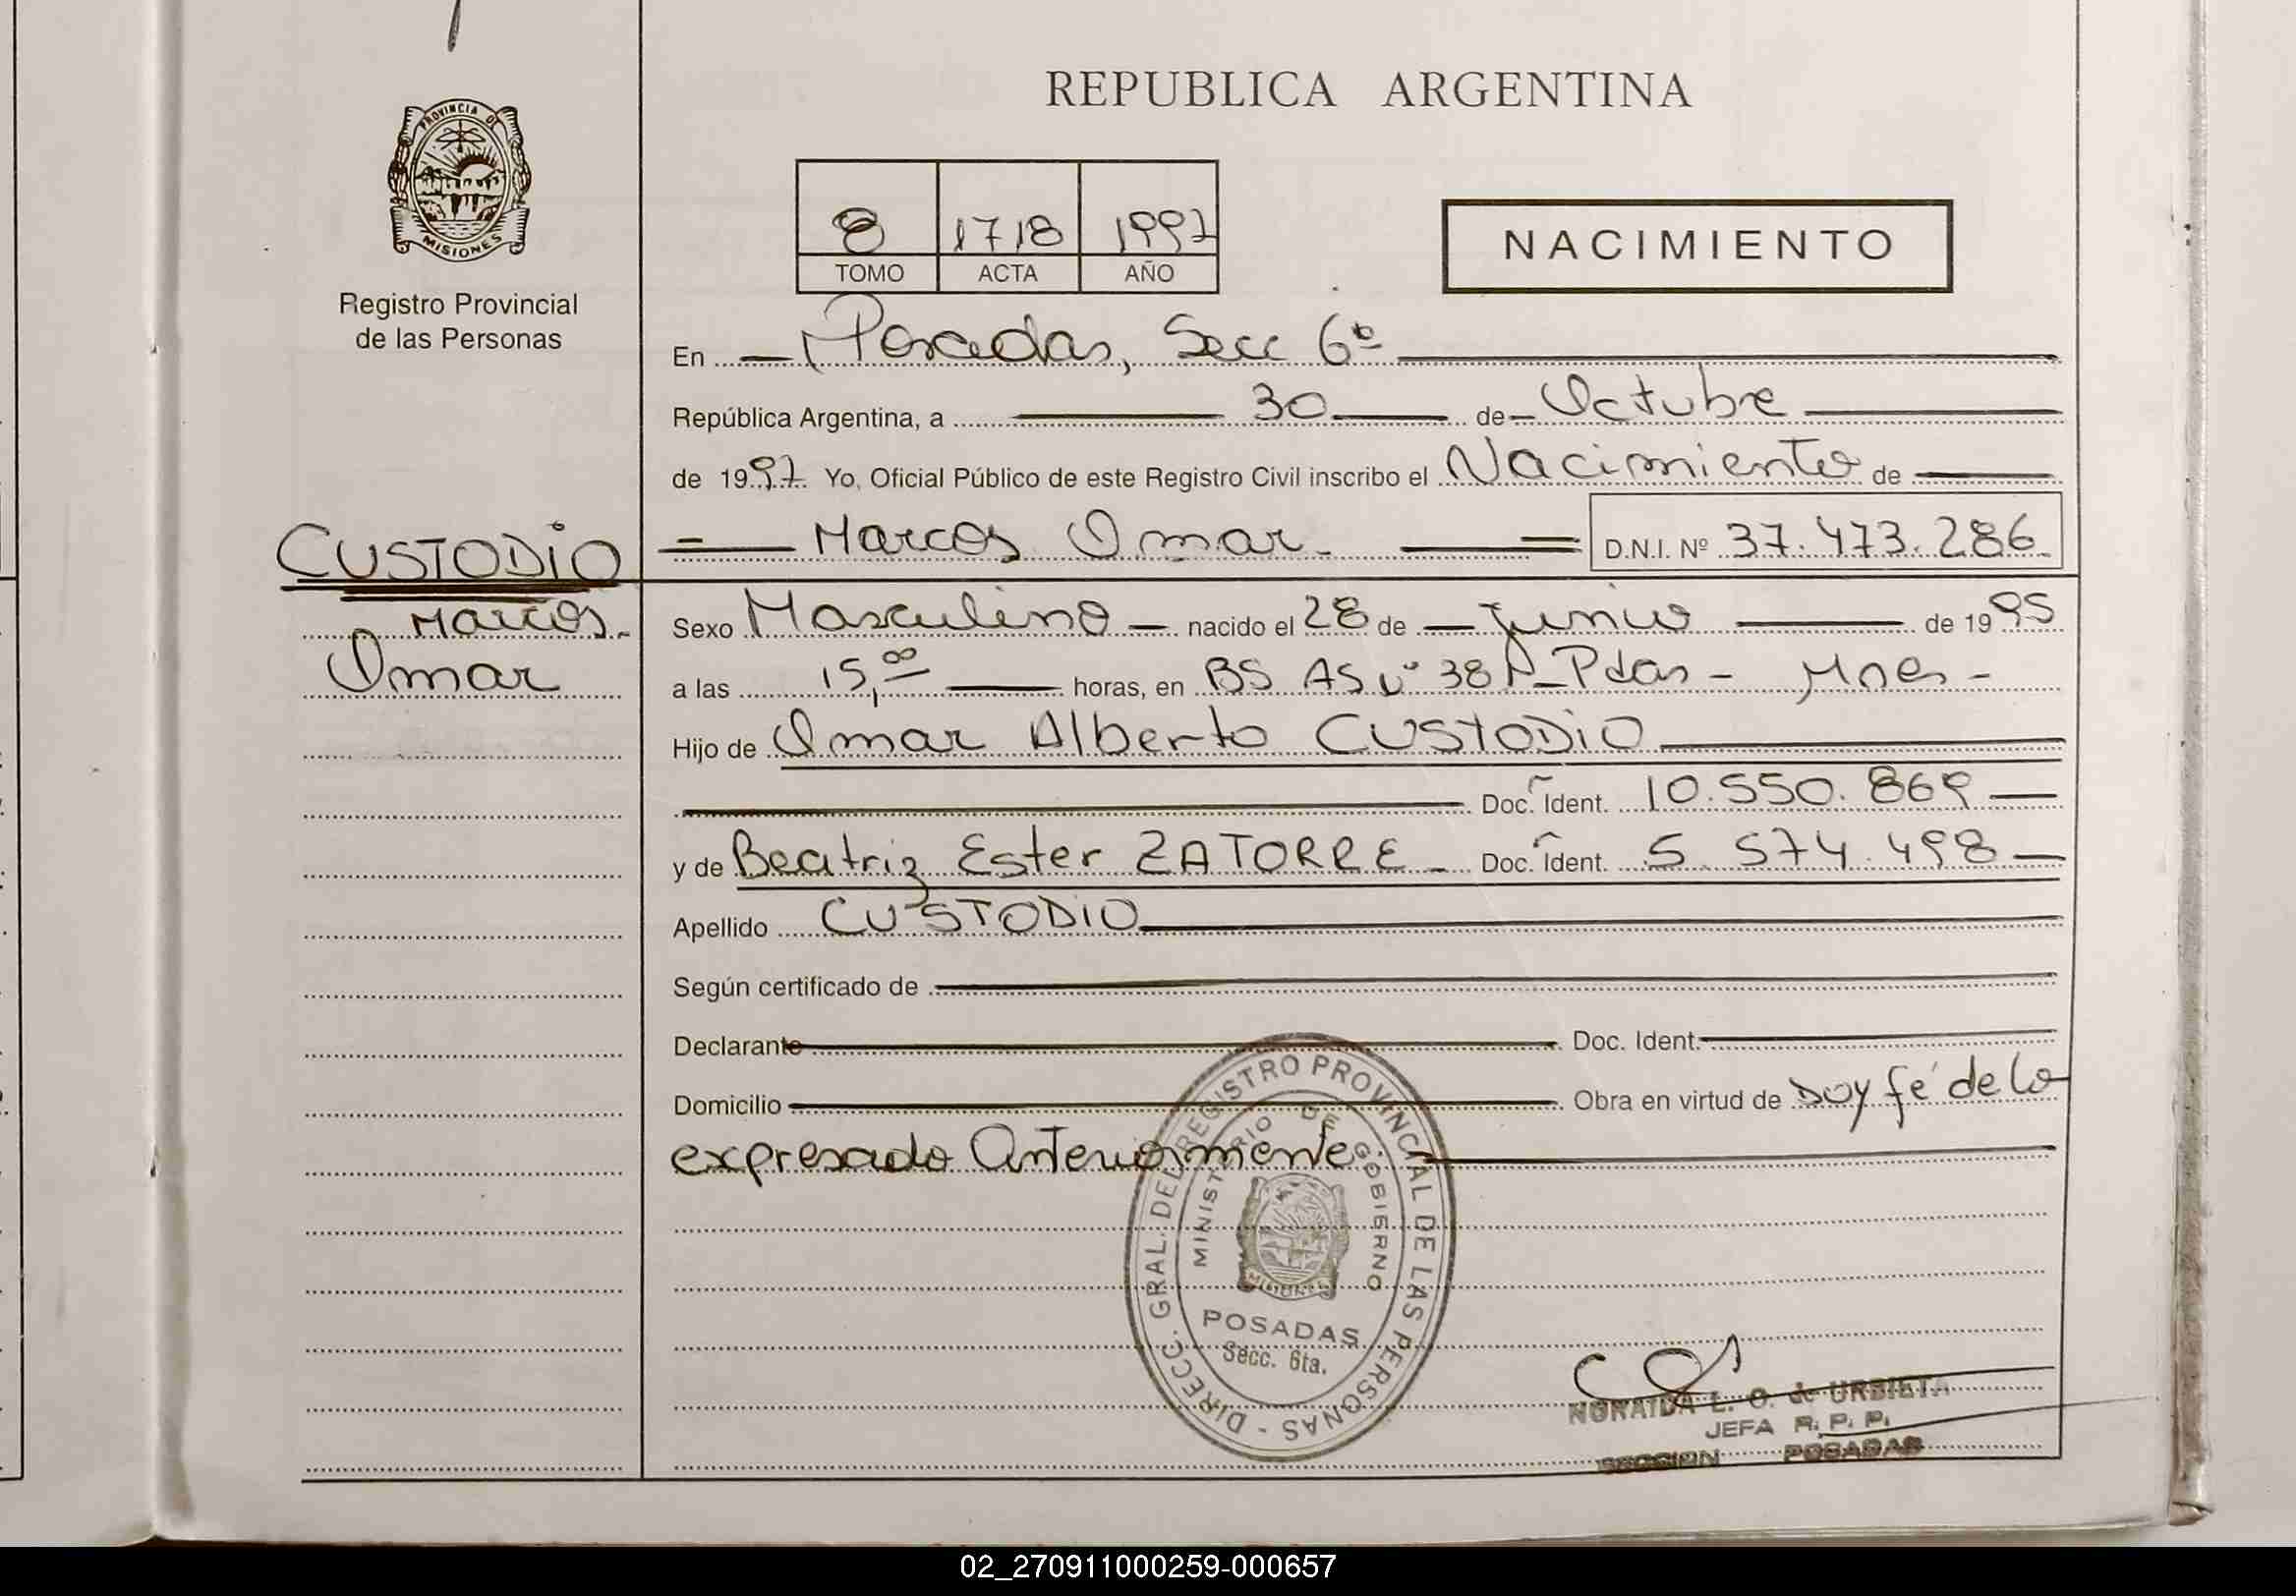 REPUBLICA ARGENTINA
PROVINCIA DE
MISIONES
Registro Provincial
de las Personas
8 1718 1997
TOMO ACTA AÑO
NACIMIENTO
En Posadas, Secc 6ª
República Argentina, a 30 de Octubre
de 1997 Yo, Oficial Público de este Registro Civil inscribo el Nacimiento de
CUSTODIO
Marcos
Omar
Marcos Omar D.N.I. Nº 37.473.286
Sexo Masculino nacido el 28 de Junio de 1995
a las 15,00 horas, en BS AS Nº 38 Pdas - Mnes -
Hijo de Omar Alberto CUSTODIO
Doc. Ident. 10.550.869
y de Beatriz Ester ZATORRE Doc. Ident. 5.574.498
Apellido CUSTODIO
Según certificado de
Declarante Doc. Ident.
Domicilio Obra en virtud de Doy fé de lo
expresado Anteriormente
DIRECC. GRAL. DEL REGISTRO PROVINCIAL DE LAS PERSONAS -
MINISTERIO DE GOBIERNO
MISIONES
POSADAS
Secc. 6ta.
NORAIDA L. O. de URBIETA
JEFA R. P. P.
SECCION POSADAS
02_270911000259-000657